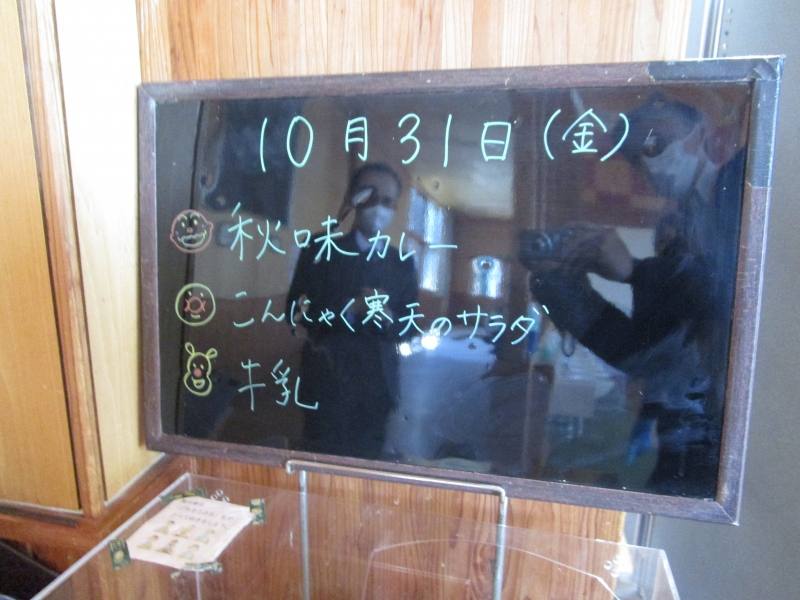 10月31日(金)
秋味カレー
こんにゃく寒天のサラダ
牛乳